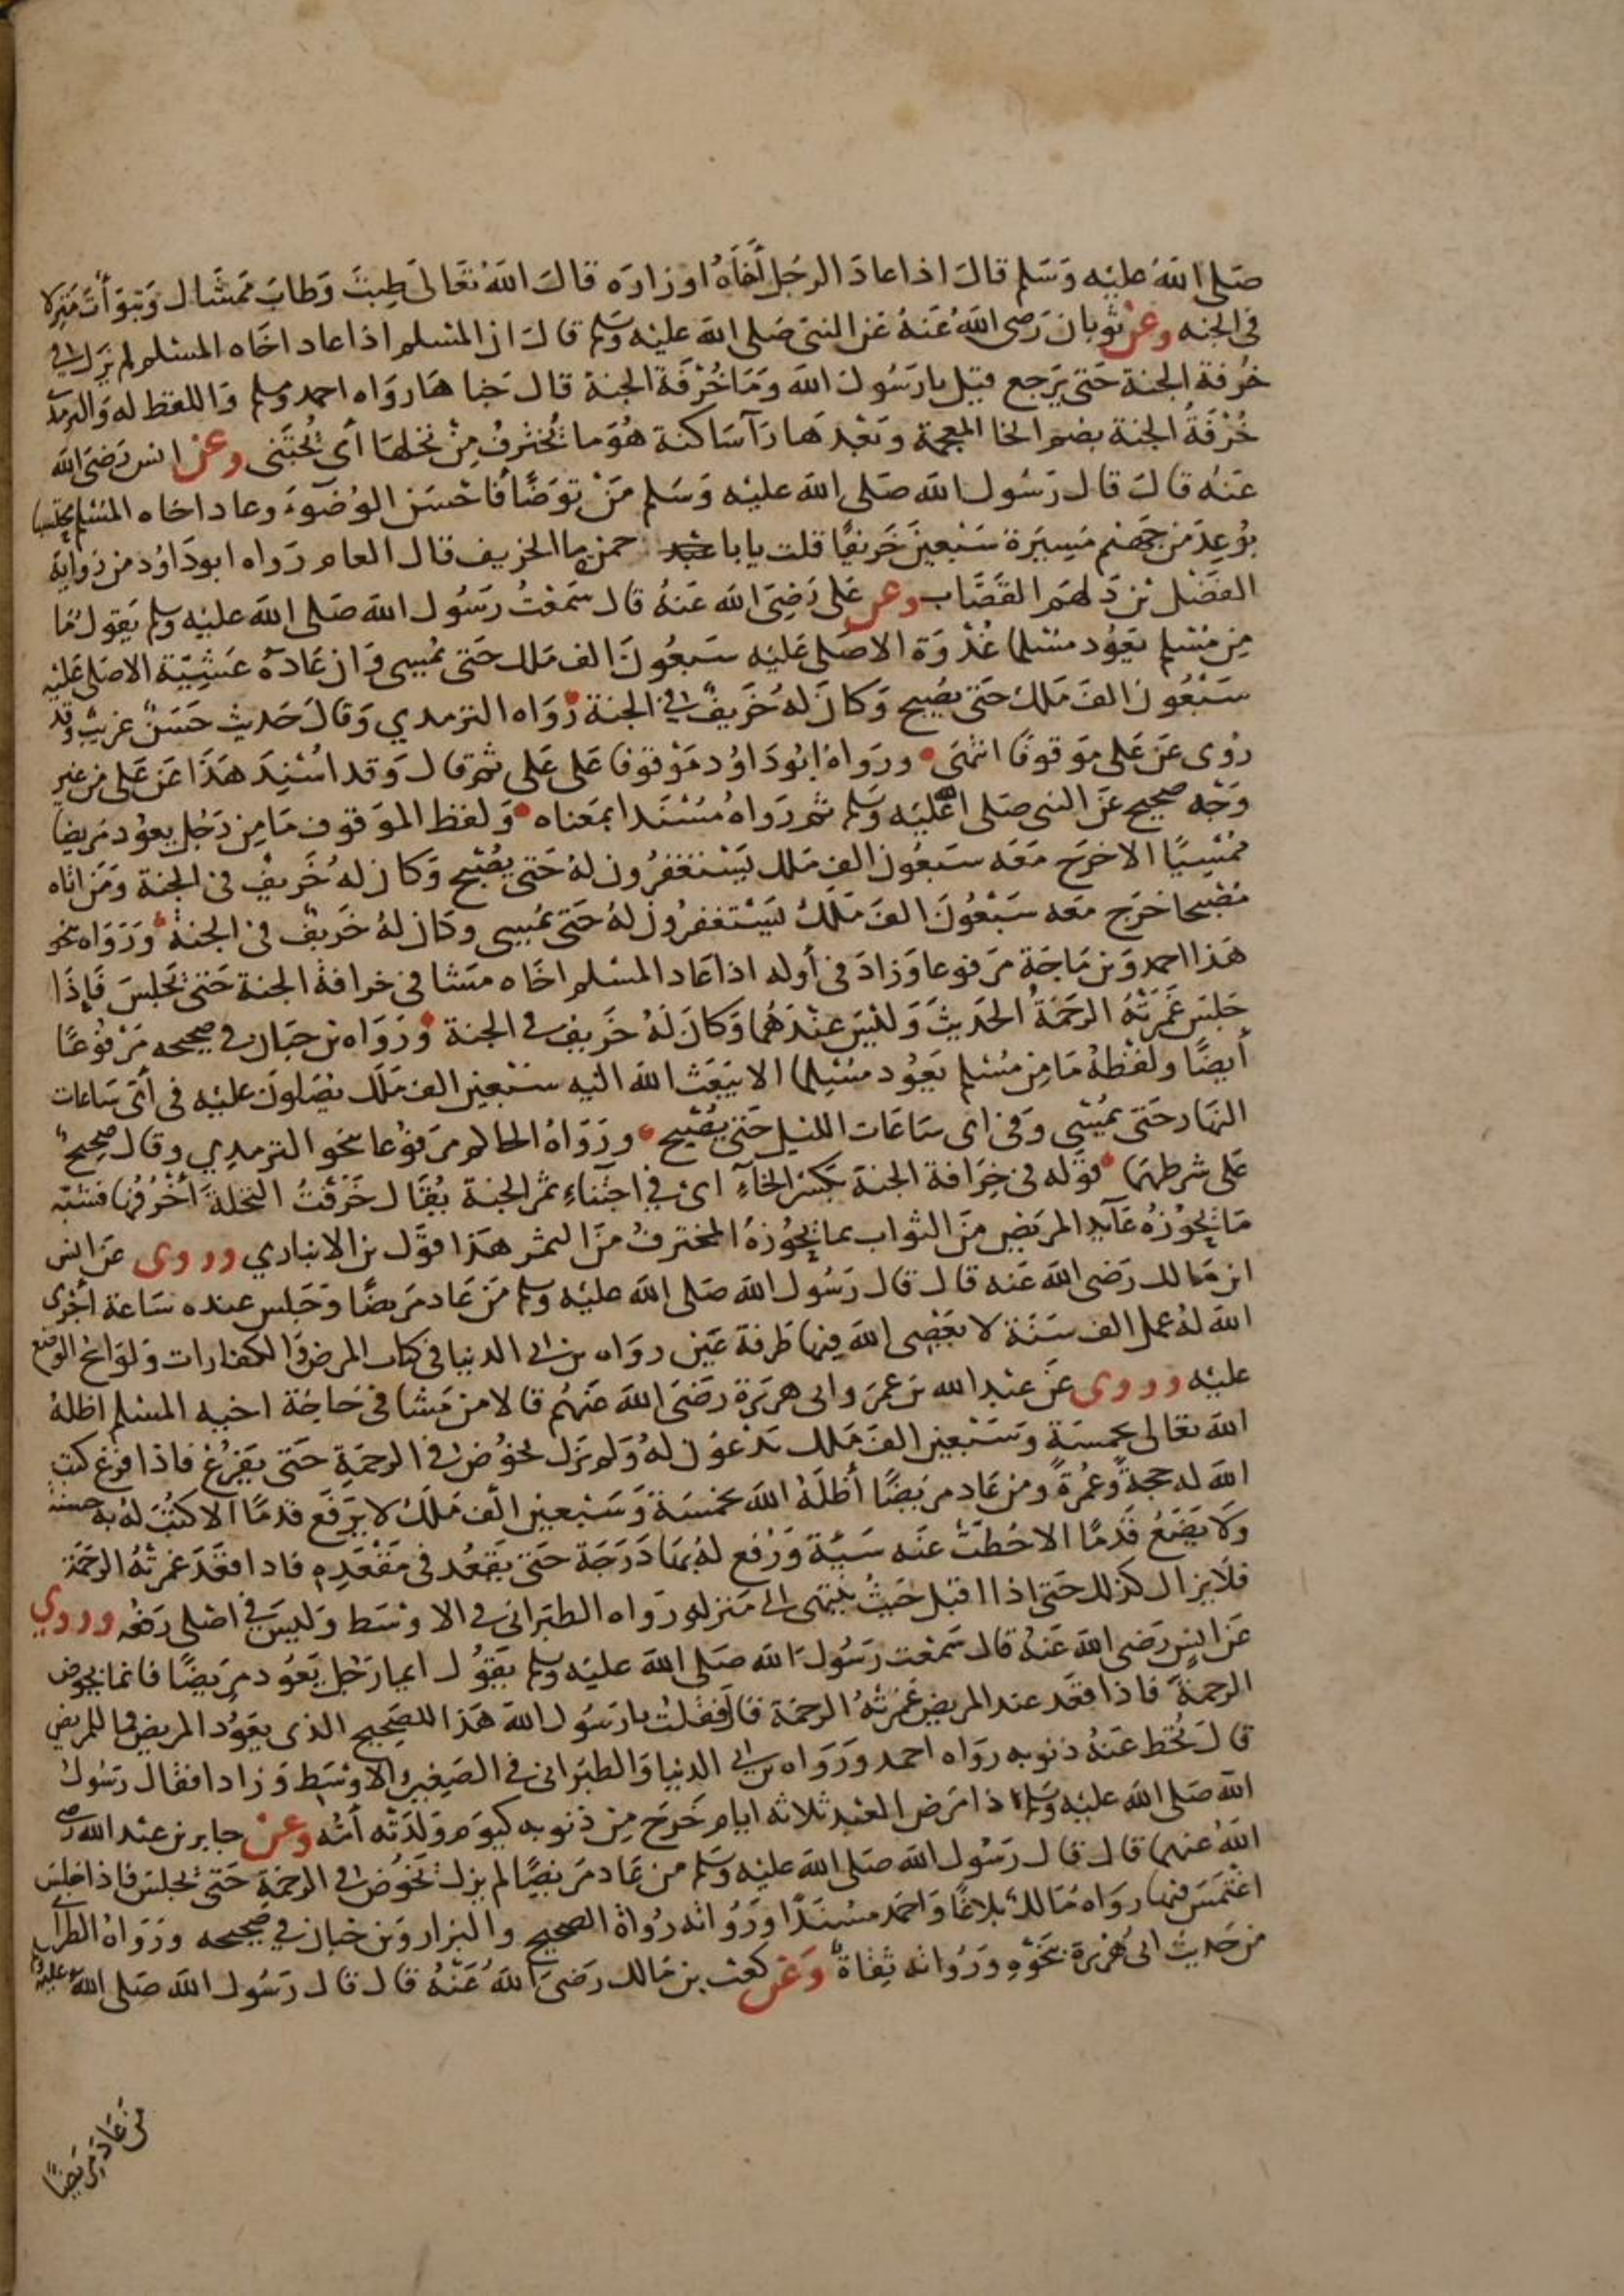 صَلى اللهُ عليْه وَسَلم قالَ اذا عادَ الرجُل أَخَاهُ او زارَه قالَ اللهُ تعَالى طِبتَ وَطابَ ممَشَاك وَتبَوّأتَ مَنزِلا
في الجنه وعَن ثوبان رَضي اللهُ عَنهُ عَن النبيّ صَلى الله عليْه وَسَلم قالَ ان المسْلم اذا عاد اخَاه المسْلم لم يَزل في
خُرفة الجنة حَتى يَرجع قيْل يا رَسُول الله وَمَا خُرْفَة الجنة قال جَناهَا رَوَاه احمد ومسلم وَاللفظ له وَالترمذي
خُرْفَةُ الجنة بضم الخا المعجمة وبَعْدهَا رَآ سَاكنة هُوَ ما يُختَرفُ مِنْ نخلهَا أي يُجْتَنى وعَن انس رَضيَ الله
عَنْه قالَ قال رَسُول الله صَلى الله عليْه وَسَلم مَنْ توَضّأ فَاحْسَن الوُضوءَ وعاد اخاه المسْلم محتسبا
بوُعِدَ من جَهنم مَسِيرَة سَبْعينَ خَريفًا قلت يا با حمزه ما الخريف قال العام رَواه ابو دَاوُد من رواية
الفضْل بن دَلهَم القَصَّاب وعن عَلي رَضيَ الله عَنهُ قال سَمعْتُ رَسُول الله صَلى الله عليْه وسلم يَقول مَا
مِن مُسْلم يَعُود مسْلما غُدْوَة الا صَلى عَليْه سَبعُونَ الف مَلك حَتى يمُسِي وَان عَادَهُ عَشِيّة الا صَلى عَليْه
سَبْعُون الفَ مَلك حَتى يصُبح وَكانَ لهُ خَريفٌ في الجنة رَوَاه الترمدي وَقالَ حَديث حَسَنٌ غريبٌ وقد
رُوى عَن عَلي موَقوفًا انتهَى وروَاهُ ابُو دَاوُد مَوْقوفا عَلى عَلي ثم قال وَقد اسُنِدَ هَذَا عَن عَلي من غير
وَجْه صحيح عَن النبي صَلى الله عَليْه وَسَلم ثم رَوَاهُ مُسْنَدا بمعَناه وَلفظ الموَقوف مَا مِن رَجُل يعوُد مَريضا
ممُسِيًا الا خرَج مَعَه سَبعُون الف مَلك يَسْتغفرُون لهُ حَتى يُصْبح وَكان لهُ خَريفٌ في الجنة وَمَن اتاه
مُصْبحا خرَج معَه سَبْعُونَ الفَ مَلك يَسْتغفرُون لهُ حَتى يمُسِي وكان لهُ خَريفٌ في الجنة وَرَوَاه بنحو
هَذا احمد وَبن مَاجَة مرَفوعا وَزادَ في أوله اذا عَاد المسْلم اخَاه مشَا في خرافة الجنة حَتى يَجلسَ فَاِذَا
جَلسَ غَمرَتْهُ الرحَمَةُ الحَديثَ وَليْسَ عنْدَهمَا وَكانَ لهُ خَريف في الجنة وَرَوَاه بن حبَان في صَحيحه مَرْفوُعًا
أيضًا وَلفظهُ مَا مِن مُسْلم يَعُود مسْلِما الا يَبعَث الله اليْه سَبْعين الف مَلَك يصَلونَ عليْه في أيّ سَاعَات
النهَار حَتى يمُسْي وَفي اي سَاعَات الليْل حَتى يصُبْح وروَاهُ الحاكم مرَفوْعا بنحو الترمدِي وقال صَحيحٌ
عَلى شرطهمَا قوَله في خِرَافة الجنة بكسْر الخاء اي في اجتناء ثمَر الجنة يُقَال خَرَفْتُ النخلة أَخْرُفُها فشبّه
مَا يحُوزهُ عَآيد المريَض منَ الثواب بما يحُوزهُ المخترفُ منَ الثمر هَذا قوَل بن الانباري وروى عن انس
ابن مَالك رَضيَ الله عَنه قال قال رَسُول الله صَلى الله عليْه وسلم مَن عَاد مَريضًا وَجَلس عنده سَاعة أَجْرَى
الله لهُ عمل الف سَنَة لا يَعصِي الله فيها طَرفة عَين رواه بن ابي الدنيا في كتاب المرض وَالكفارات وَلوَائح الوضع
عليْه وروى عَن عبْد الله بن عمَر وابي هريَرَة رَضيَ الله عَنهُم قالا من مَشا في حَاجَة اخيه المسْلم اظله
الله تعَالى بخمسَة وَسَبْعين الفَ مَلك يَدْعُون لهُ وَلم يزَل يخوُض في الرحَمةِ حَتى يَفرُغ فاذا فرَغ كتبَ
الله له حجةً وَعُمرَةً ومن عَاد مريَضًا أظلَهُ الله بخمسَة وَسَبْعين الف مَلَك لا يَرَفع قدمًا الا كتُبَ لهُ به حسنة
وَلا يضَعُ قَدَمًا الا حُطتْ عَنْه سَيّة وَرُفع لهُ بهَا دَرَجَة حَتى يَقعُد في مَقْعَدِه فاذا قعَدَ غمرتْهُ الرحَمَة
فلا يزال كذلك حَتى اذا اقبل حَيثُ ينتهي الى مَنزله رَواه الطبَراني في الاوسَط وَليسَ في اصْلي رَفعُه وروي
عَن انسٍ رَضي الله عَنهُ قال سَمعت رَسُولَ الله صَلى الله عليْه وسلم يقوُل ايما رَجُل يَعُود مرَيضًا فانما يخوض
الرحمةَ فاذا قعَد عند المريض غَمرَتهُ الرحمَة قالَ فقلت يا رَسُول الله هَذا للصَحيح الذي يعَوُد المريض فما للمريض
قالَ تُحَط عَنْهُ ذنوبه روَاه احمد وَرَوَاه بن ابي الدنيا وَالطبَراني في الصَغير والاوْسَط وَزاد فقال رَسُولُ
الله صَلى الله عليْه وَسَلم اذا مرَض العبْد ثلاثه ايام خَرَج مِن ذنوبه كيوَم وَلدَتْه أمّه وعَن جابر بن عبْد الله رضي
اللهُ عنهما قال قال رَسُول الله صَلى الله عليْه وَسَلم من عَاد مَريضًا لم يزل يَخوُض في الرحمَةِ حَتى يجلسَ فاذا جلسَ
اغتمَسَ فيها روَاه مَالك بلاغًا وَاحمَد مسْنَدًا وَرُوَاته رُواة الصحيح والبزار وَبن حبان في صَحيحه وَرَوَاهُ الطبراني
من حَديث ابي هُريْرَة بنحَوْهِ وَرُوَاته ثِقاةٌ وَعَن كعْب بن مَالك رَضيَ اللهُ عَنْهُ قال قال رَسُول الله صَلى الله عليه وسلم
من عَادَ مَريَضًا